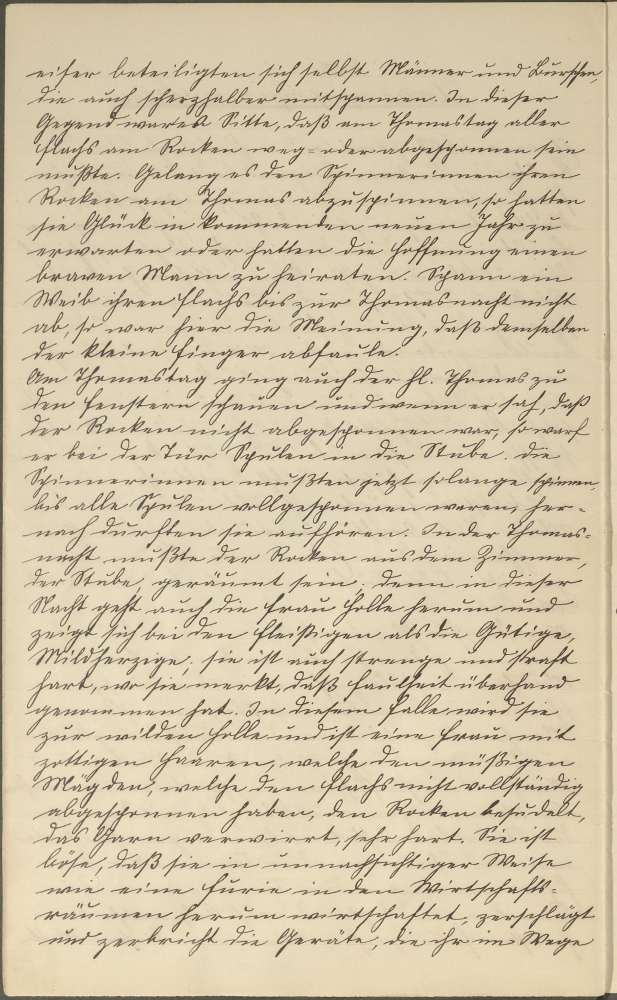 eifer beteiligten sich selbst Männer und Burschen,
die auch scherzhalber mitspannen. In dieser
Gegend war es Sitte, daß am Thomastag aller
Flachs am Rocken weg- oder abgesponnen sein
mußte. Gelang es den Spinnerinnen ihren
Rocken am Thomas abzuspinnen, so hatten
sie Glück in kommenden neuen Jahr zu
erwarten oder hatten die Hoffnung einen
braven Mann zu heiraten. Spann ein
Weib ihren Flachs bis zur Thomasnacht nicht
ab, so war hier die Meinung, daß demselben
der kleine Finger abfaule.
Am Thomastag ging auch der hl. Thomas zu
den Fenstern schauen und wenn er sah, daß
der Rocken nicht abgesponnen war, so warf
er bei der Tür Spulen in die Stube. Die
Spinnerinnen mußten jetzt solange spinnen,
bis alle Spulen vollgesponnen waren, her-
nach durften sie aufhören. In der Thomas-
nacht mußte der Rocken aus dem Zimmer,
der Stube, geräumt sein; denn in dieser
Nacht geht auch die Frau Holle herum und
zeigt sich bei den Fleißigen als die Gütige,
Mildherzige; sie ist auch strenge und straft
hart, wo sie merkt, daß Faulheit überhand
genommen hat. In diesem Falle wird sie
zur wilden Holle und ist eine Frau mit
zottigen Haaren, welche den müßigen
Mägden, welche den Flachs nicht vollständig
abgesponnen haben, den Rocken besudelt,
das Garn verwirrt, sehr hart. Sie ist
böse, daß sie in unnachsichtiger Weise
wie eine Furie in den Wirtschafts-
räumen herum wirtschaftet, zerschlägt
und zerbricht die Geräte, die ihr im Wege